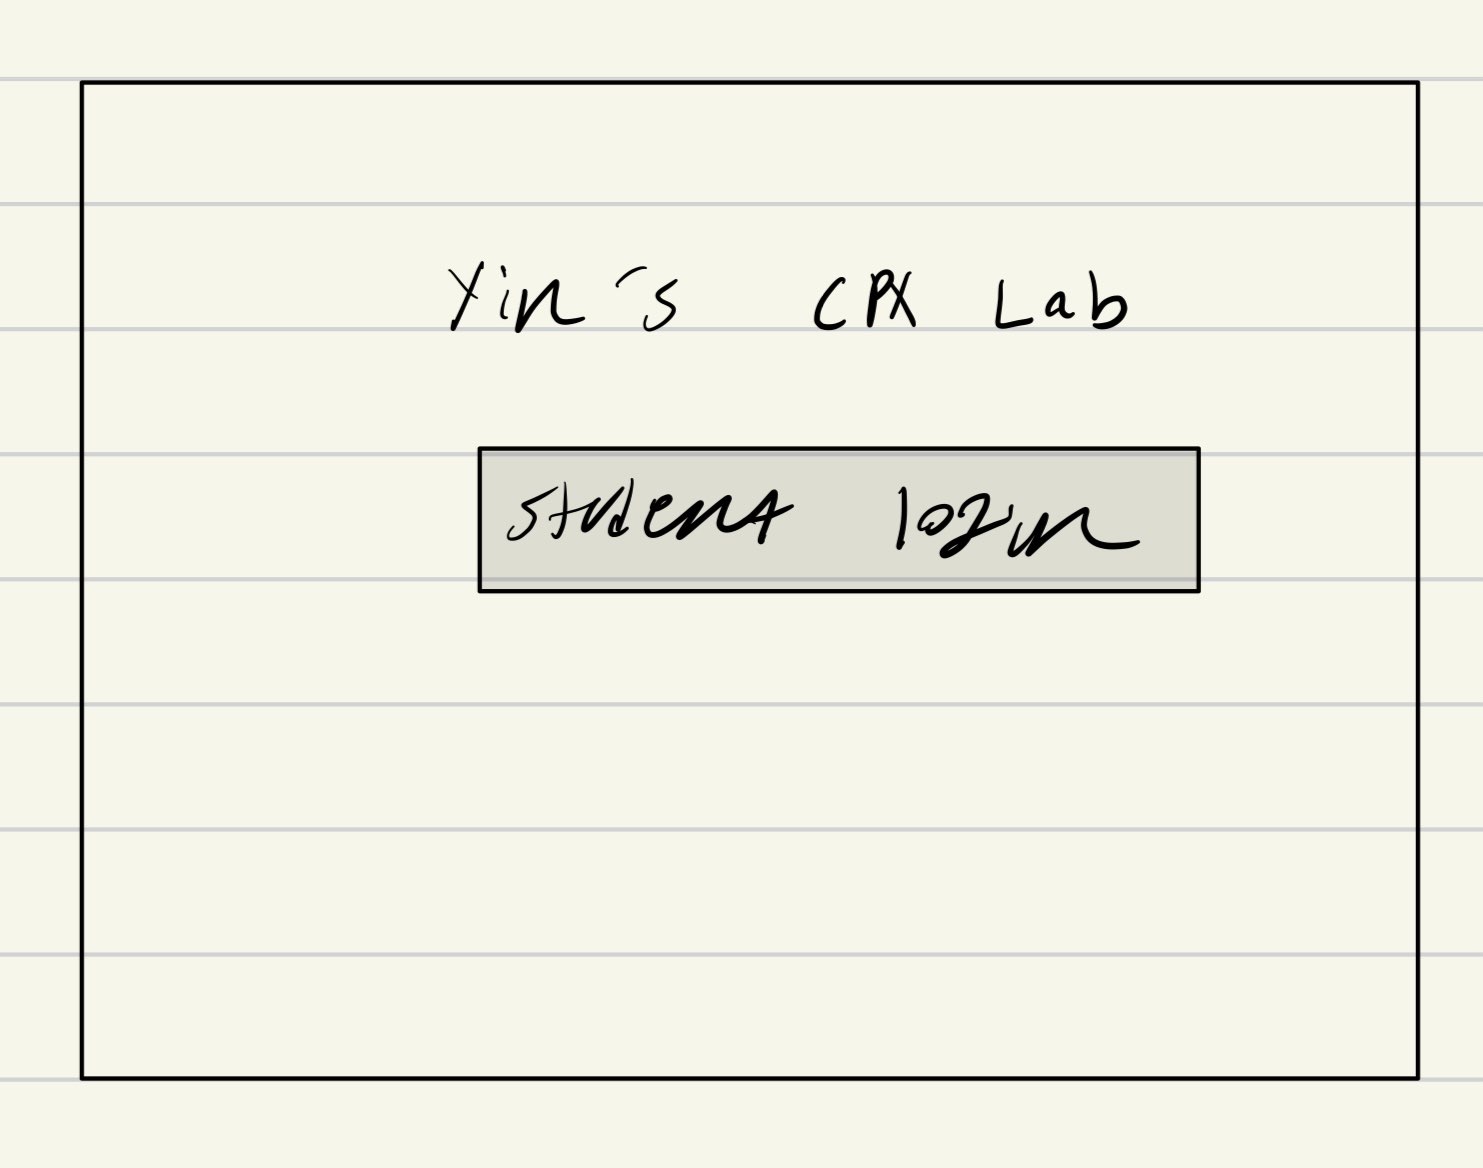 Yin's CPX Lab
student login